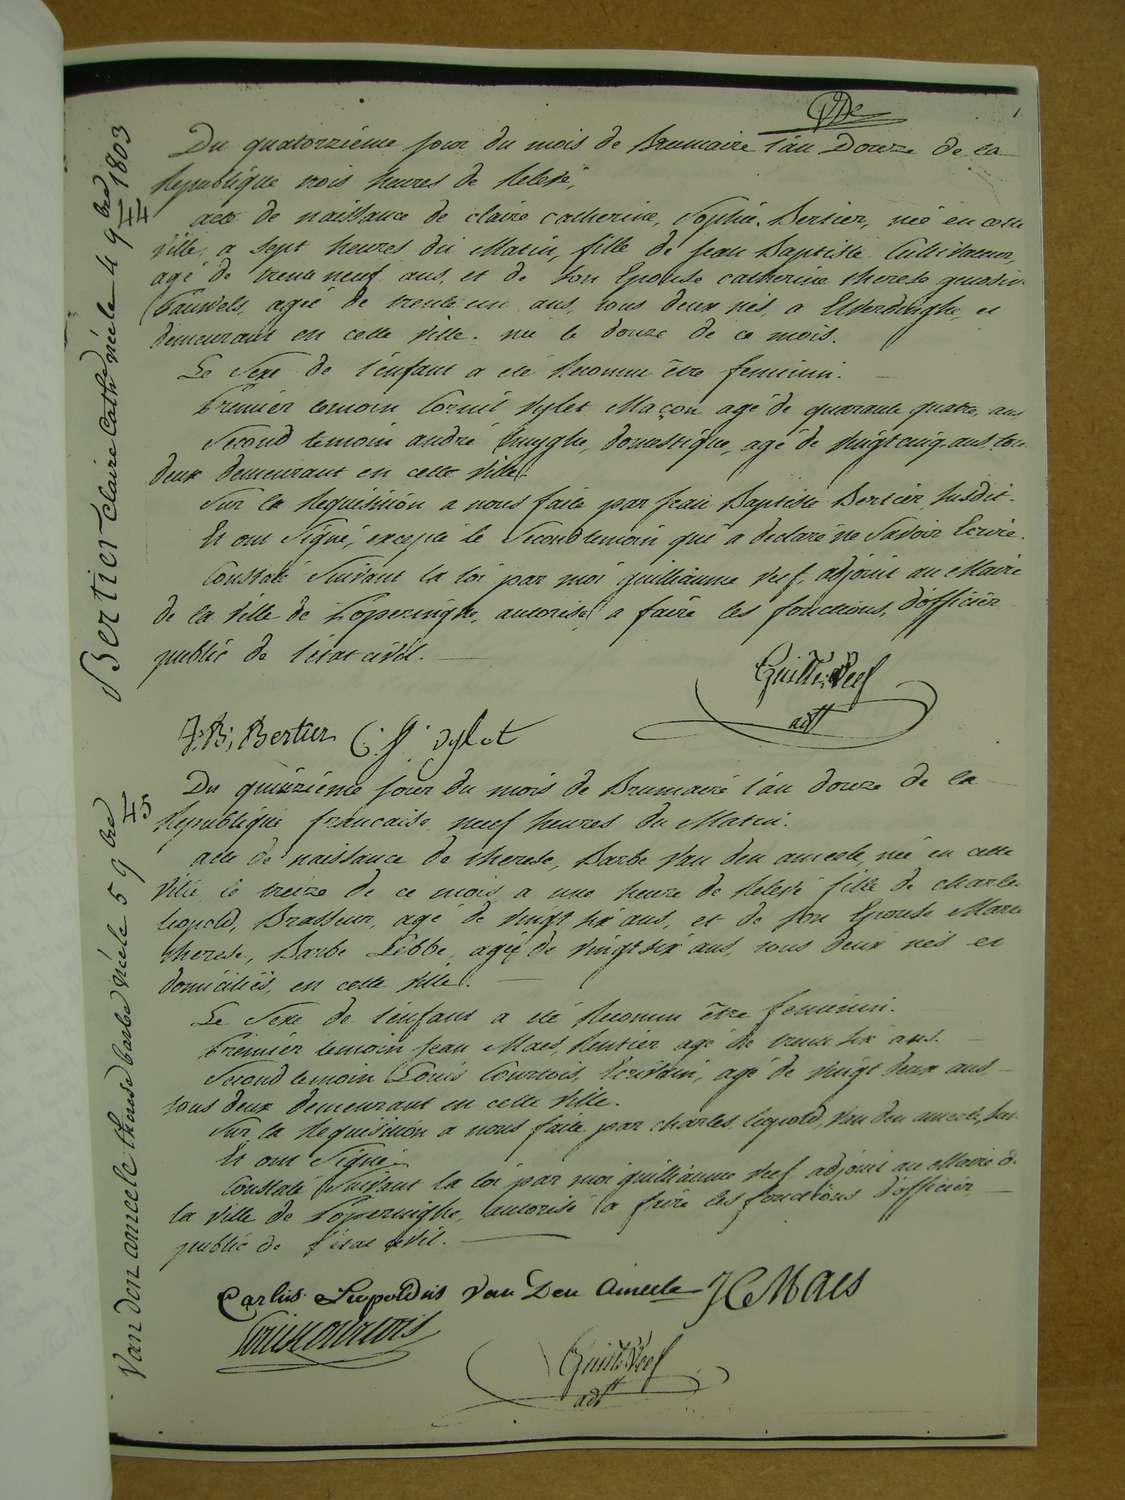 Du quatorzième jour du mois de Brumaire l'an Douze de la
République trois heures de Relevé,
acte de naissance de claire catherine, Sophie, Bertier, née en cette
ville, a sept heures du Matin, fille de Jean Baptiste Cultivateur,
agé de trente neuf ans, et de son Epouse catherine therese
Pauwels, agée de trente un ans, tous deux nés, a Elverdinghe, et
demeurant en cette ville. née le douze de ce mois.
Le Sexe de l'enfant a été Reconnu être feminin.
Premier temoin Cornil Vylet Maçon agé de quarante quatre ans
Second temoin andré Huyghe, domestique, agé de vingt cinq ans, tous
deux demeurant en cette ville.
Sur la Requisition a nous faite par Jean Baptiste Bertier susdit.
Et ont Signé, excepté le Second temoin qui a declaré ne Savoir Ecrire.
Constaté Suivant la loi par moi guilliaume Neef adjoint au Maire
de la Ville de Poperinghe, autorisé a faire les fonctions, d'officier
public de l'état civil.
Guill: Neef
adjt
J: B: Bertier C: J: vylet
Du quinzième jour du mois de Brumaire l'an douze de la
République française neuf heures du Matin.
acte de naissance de therese, Barbe Van den ameele, née en cette
Ville le treize de ce mois a une heure de Relevé fille de charle
leopold, Brasseur, agé de vingt six ans, et de son Epouse Marie
therese, Barbe Lebbe, agée de vingt six ans, tous deux nés et
domiciliés, en cette ville.
Le Sexe de l'enfant a été Reconnu être feminin.
Premier temoin Jean Maes, Rentier agé de trente six ans.
Second temoin Louis Courtois, Ecrivain, agé de vingt deux ans,
tous deux demeurant en cette Ville.
Sur la Requisition a nous faite par charles leopold, Van den ameele, sus
Et ont Signé
Constaté Suivant la loi par moi guilliaume Neef adjoint au Maire de
la Ville de Poperinghe, autorisé a faire les fonctions d'officier
public de l'état civil.
Carlus Leopoldus Van Den Ameele J C Maes
Louis Courtois
Guill: Neef
adjt
Bertier Claire Cath née le 4 9bre 1803
Van den ameele therese barbe née le 5 9bre